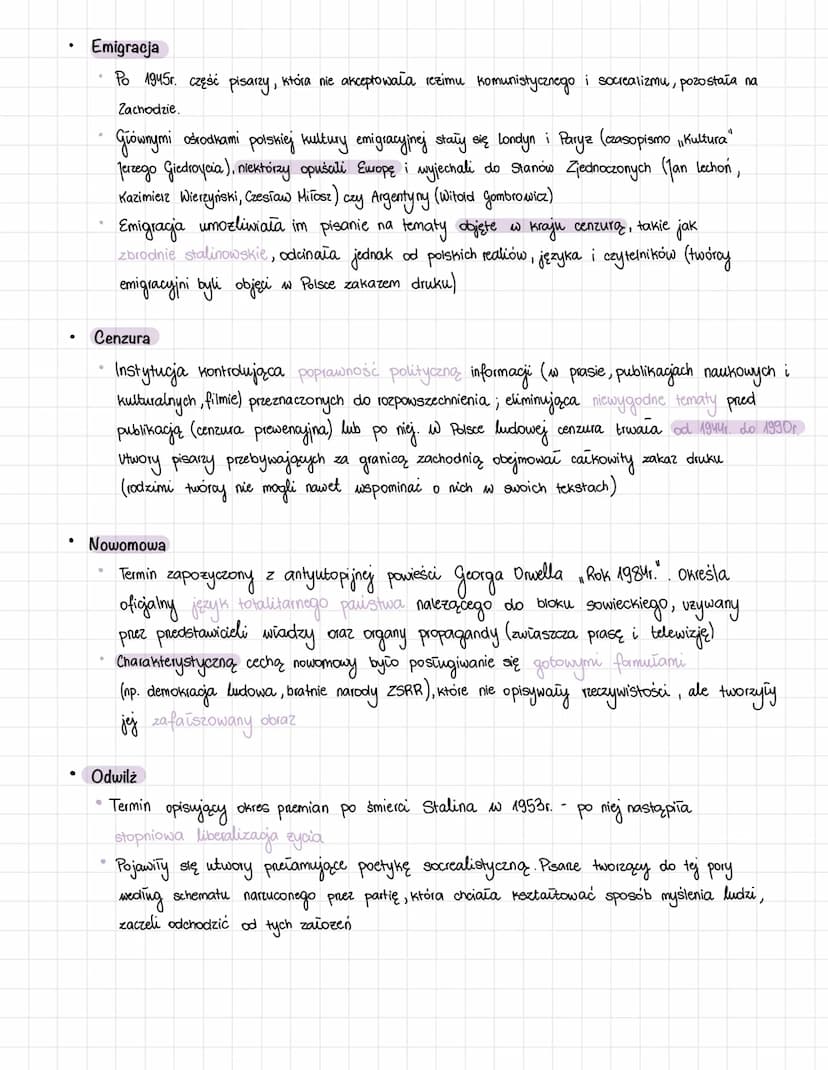 • Emigracja
• Po 1945r. część pisarzy, która nie akceptowała reżimu komunistycznego i socrealizmu, pozostała na
Zachodzie.
• Głównymi ośrodkami polskiej kultury emigracyjnej stały się Londyn i Paryż (czasopismo „Kultura"
Jerzego Giedroycia), niektórzy opuścili Europę i wyjechali do Stanów Zjednoczonych (Jan Lechoń,
Kazimierz Wierzyński, Czesław Miłosz) czy Argentyny (Witold Gombrowicz)
• Emigracja umożliwiała im pisanie na tematy objęte w kraju cenzurą, takie jak
zbrodnie stalinowskie, odcinała jednak od polskich realiów, języka i czytelników (twórcy
emigracyjni byli objęci w Polsce zakazem druku)
• Cenzura
• Instytucja kontrolująca poprawność polityczną informacji (w prasie, publikacjach naukowych i
kulturalnych, filmie) przeznaczonych do rozpowszechnienia; eliminująca niewygodne tematy przed
publikacją (cenzura prewencyjna) lub po niej. W Polsce ludowej cenzura trwała od 1944r. do 1990r.
Utwory pisarzy przebywających za granicą zachodnią obejmował całkowity zakaz druku
(rodzimi twórcy nie mogli nawet wspominać o nich w swoich tekstach)
• Nowomowa
• Termin zapożyczony z antyutopijnej powieści Georga Orwella „Rok 1984r.". Określa
oficjalny język totalitarnego państwa należącego do bloku sowieckiego, używany
przez przedstawicieli władzy oraz organy propagandy (zwłaszcza prasę i telewizję)
• Charakterystyczną cechą nowomowy było posługiwanie się gotowymi formułami
(np. demokracja ludowa, bratnie narody ZSRR), które nie opisywały rzeczywistości, ale tworzyły
jej zafałszowany obraz
• Odwilż
• Termin opisujący okres przemian po śmierci Stalina w 1953r. - po niej nastąpiła
stopniowa liberalizacja życia
• Pojawiły się utwory przełamujące poetykę socrealistyczną. Pisarze tworzący do tej pory
według schematu narzuconego przez partię, która chciała kształtować sposób myślenia ludzi,
zaczeli odchodzić od tych założeń